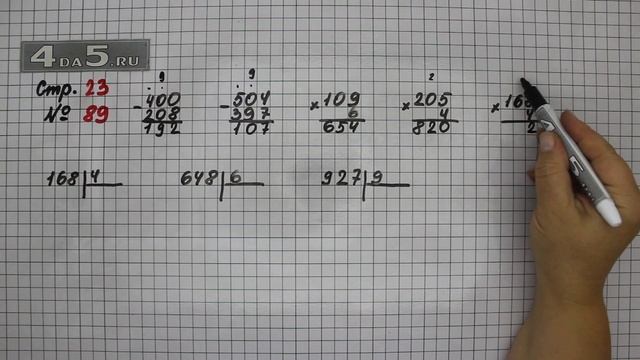 4DA5.RU
Стр. 23
№ 89
9
. .
- 400
208
192
9
. .
- 504
397
107
× 109
6
654
2
× 205
4
820
× 16
4
2
168 4
648 6
927 9